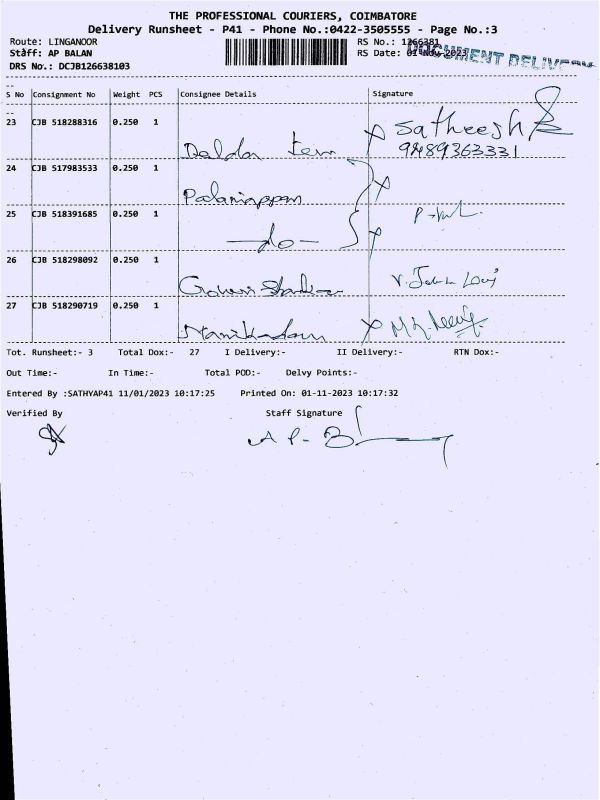 THE PROFESSIONAL COURIERS, COIMBATORE
Delivery Runsheet - P41 - Phone No.:0422-3505555 - Page No.:3
Route: LINGANOOR RS No.: 1266381
Staff: AP BALAN RS Date: 01-Nov-2023
DOCUMENT DELIVERY
DRS No.: DCJB126638103
S No Consignment No Weight PCS Consignee Details Signature
23 CJB 518288316 0.250 1 Satheesh
9489363331
24 CJB 517983533 0.250 1 Palaniappan
25 CJB 518391685 0.250 1 - do -
26 CJB 518298092 0.250 1 Gowri
27 CJB 518290719 0.250 1
Tot. Runsheet:- 3 Total Dox:- 27 I Delivery:- II Delivery:- RTN Dox:-
Out Time:- In Time:- Total POD:- Delvy Points:-
Entered By :SATHYAP41 11/01/2023 10:17:25 Printed On: 01-11-2023 10:17:32
Verified By Staff Signature
A P - B